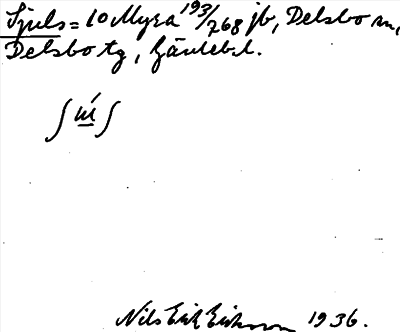 Sjuls = 10 Myra 193/768 jb, Delsbo sn,
Delsbo tg, Gävlebl.
ʃ ɯ́ ʃ
Nils Erik Eriksson 1936.